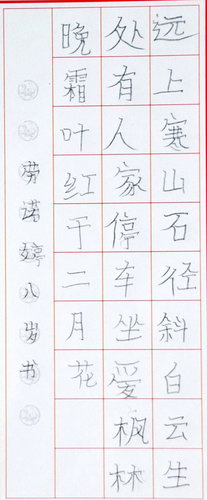 远上寒山石径斜白云生
处有人家停车坐爱枫林
晚霜叶红于二月花
劳诺婷八岁书